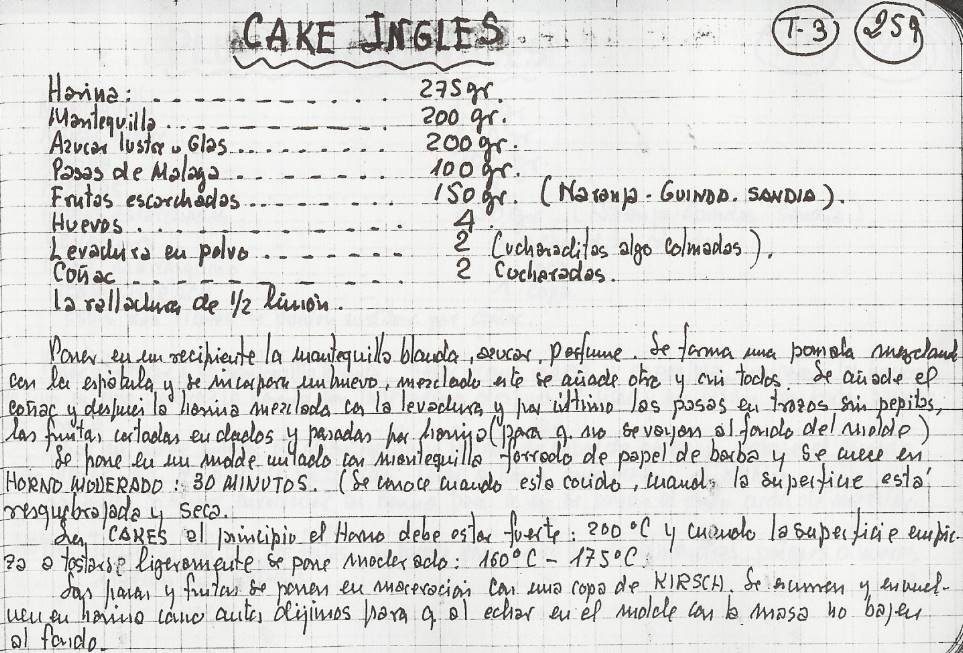 CAKE INGLES T-3 259
Harina: 275 gr.
Mantequilla 200 gr.
Azucar lustre o Glas 200 gr.
Pasas de Malaga 100 gr.
Frutas escarchadas 150 gr. (Naranja - GUINDA. SANDIA).
Huevos 4
Levadura en polvo 2 (cucharaditas algo colmadas).
Coñac 2 Cucharadas.
La ralladura de 1/2 limón.
Poner en un recipiente la mantequilla blanda, azucar, perfume. Se forma una pomada mezclando
con la espátula y se incorpora un huevo, mezclado este se añade otro y asi todos. Se añade el
coñac y despues la harina mezclada con la levadura y por ultimo las pasas en trozos sin pepitas,
las frutas cortadas en dados y pasadas por harina (para q. no se vayan al fondo del molde)
Se pone en un molde untado con mantequilla forrado de papel de barba y se cuece en
HORNO MODERADO: 30 MINUTOS. (Se conoce cuando esta cocido, cuando la superficie está
resquebrajada y seca.
Los CAKES al principio el Horno debe estar fuerte: 200 °C y cuando la superficie empie-
za a tostarse ligeramente se pone moderado: 160°C - 175°C.
Las pasas y frutas se ponen en maceración con una copa de KIRSCH. Se escurren y envuel-
ven en harina como antes dijimos para q al echar en el molde con la masa no bajen
al fondo.